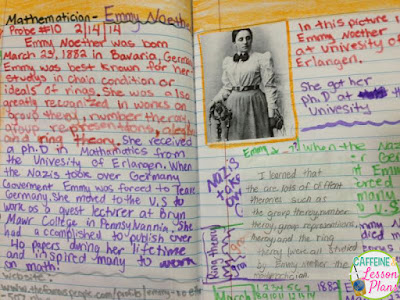 Mathematician - Emmy Noether
Probe #10 2/14/14
Emmy Noether was born
March 23, 1882 in Bavaria, Germany
Emmy was best known for her
studys in chain condition or
ideals of rings. She was also
greatly recognized in works on
group theory, number theory,
group representions,
and ring theory. She received
a ph.D in Mathematics from
the Univesity of Erlangen. When
the Nazis took over Germans
Government Emmy was forced to
Germany. She moved to the U.S to
work as a guest lecturer at Bryn
Mawr College in
had a complished to publish over
40 papers during her lifetime
and inspired many to
on math.
In this picture is
Emmy Noether
at Univesity of
Erlangen.
She got her
ph.D at the
Univesity
NAZIS
take
over
I learned that
the are lots of diffent
theroies such as
the group theroy, number
theroy, group represention
theroy and the ring
theroy were all studied
by Emmy Noether the
Ring Theory
when the Na
March
CAFFEINE
& Lesson
Plans